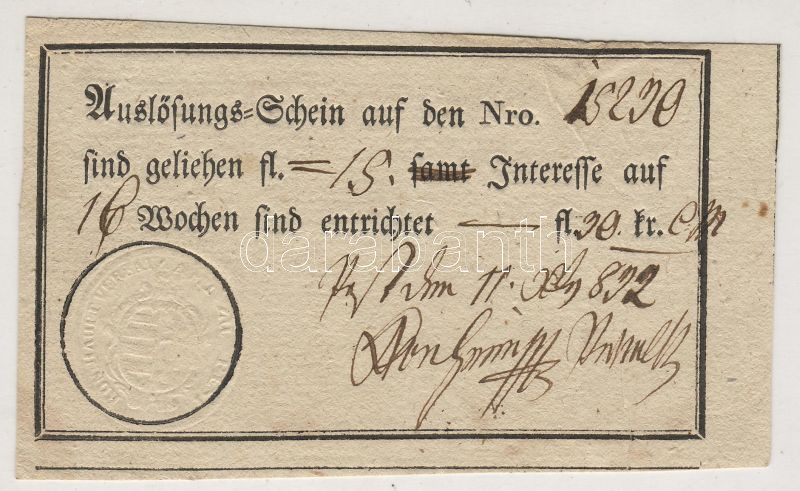 Auslösungs=Schein auf den Nro. 15230
sind geliehen fl. = 15. samt Interesse auf
16 Wochen sind entrichtet — fl. 30. kr. CM
Pest den 11. 832
darabanth